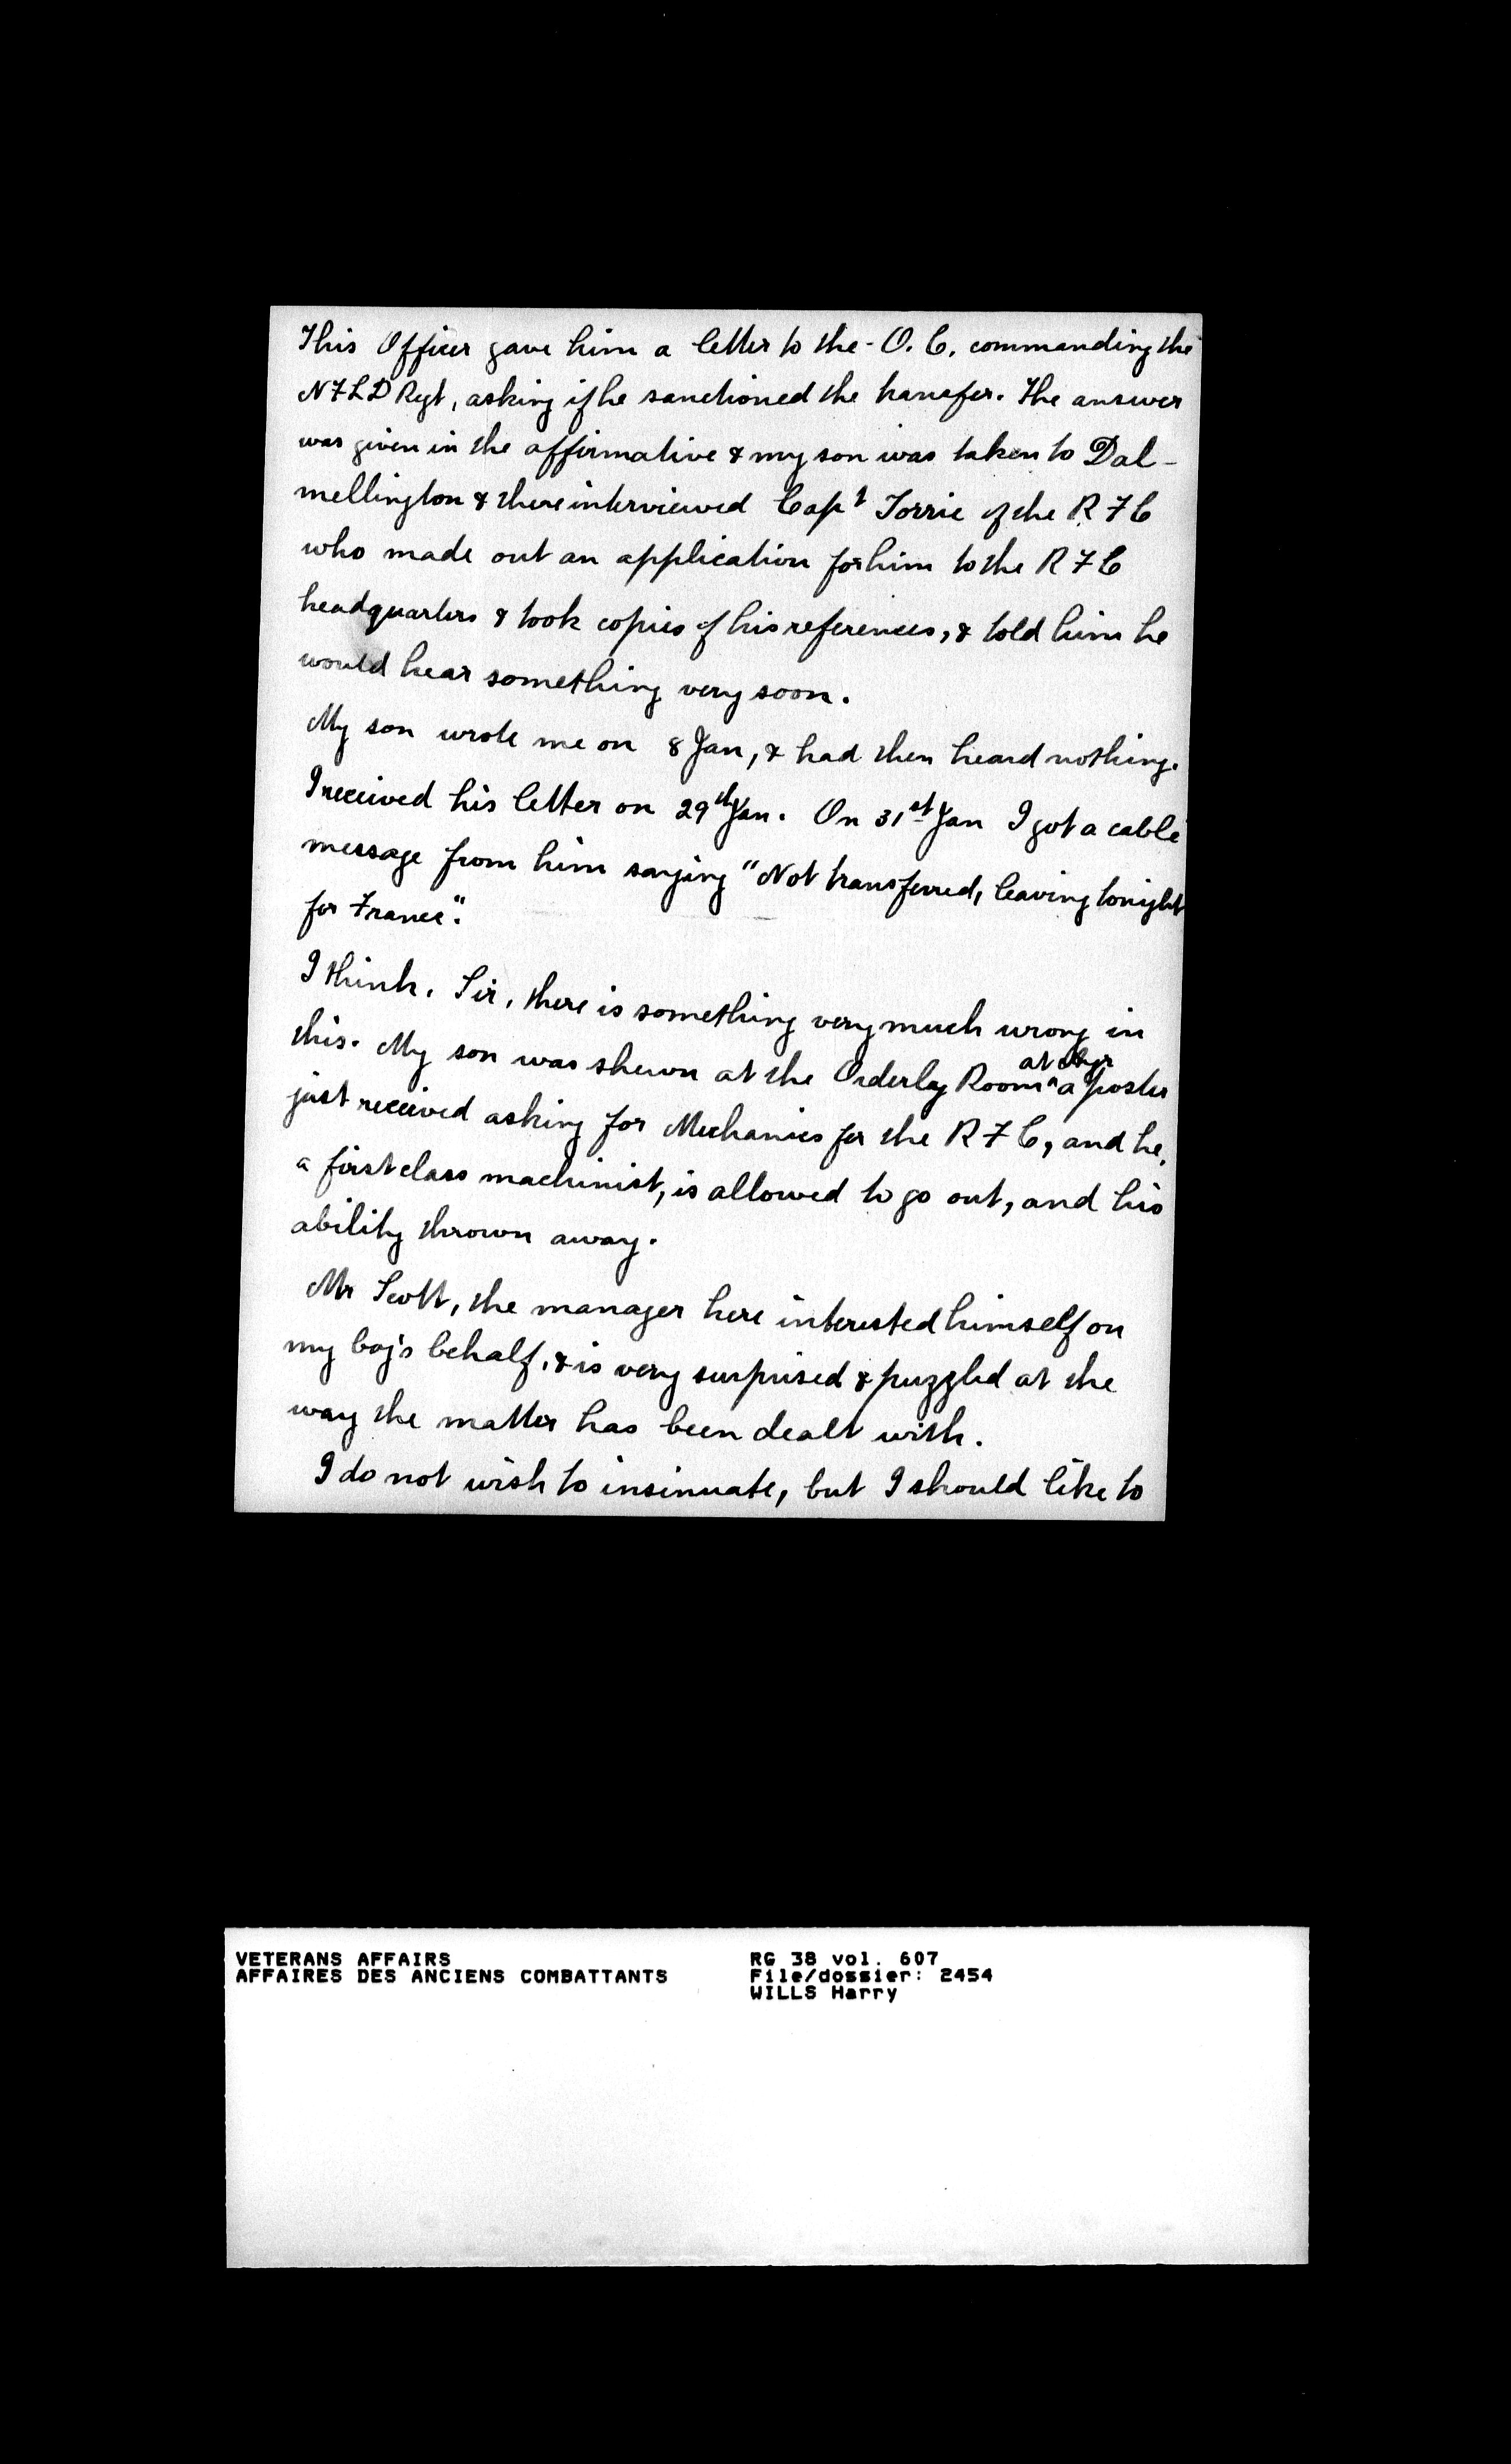 This Officer gave him a letter to the - O. C. commanding the
NFLD Regt, asking if he sanctioned the transfer. The answer
was given in the affirmative & my son was taken to Dal-
mellington & there interviewed Capt Torrie of the R F C
who made out an application for him to the R F C
headquarters & took copies of his references, & told him he
would hear something very soon.
My son wrote me on 8 Jan, & had then heard nothing.
I received his letter on 29th Jan. On 31st Jan I got a cable
message from him saying "Not transferred, leaving tonight
for France".
I think, Sir, there is something very much wrong in
this. My son was shewn at the Orderly Room at Ayr a poster
just received asking for Mechanics for the R F C, and he,
a first class machinist, is allowed to go out, and his
ability thrown away.
Mr Scott, the manager here interested himself on
my boy's behalf, & is very surprised & puzzled at the
way the matter has been dealt with.
I do not wish to insinuate, but I should like to
VETERANS AFFAIRS
AFFAIRES DES ANCIENS COMBATTANTS
RG 38 vol. 607
File/dossier: 2454
WILLS Harry